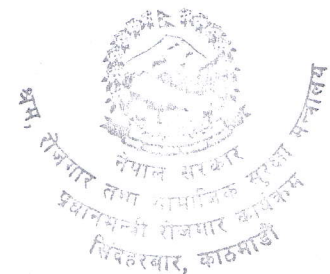 नेपाल सरकार
श्रम, रोजगार तथा सामाजिक सुरक्षा मन्त्रालय
प्रधानमन्त्री रोजगार कार्यक्रम
सिंहदरबार, काठमाडौं